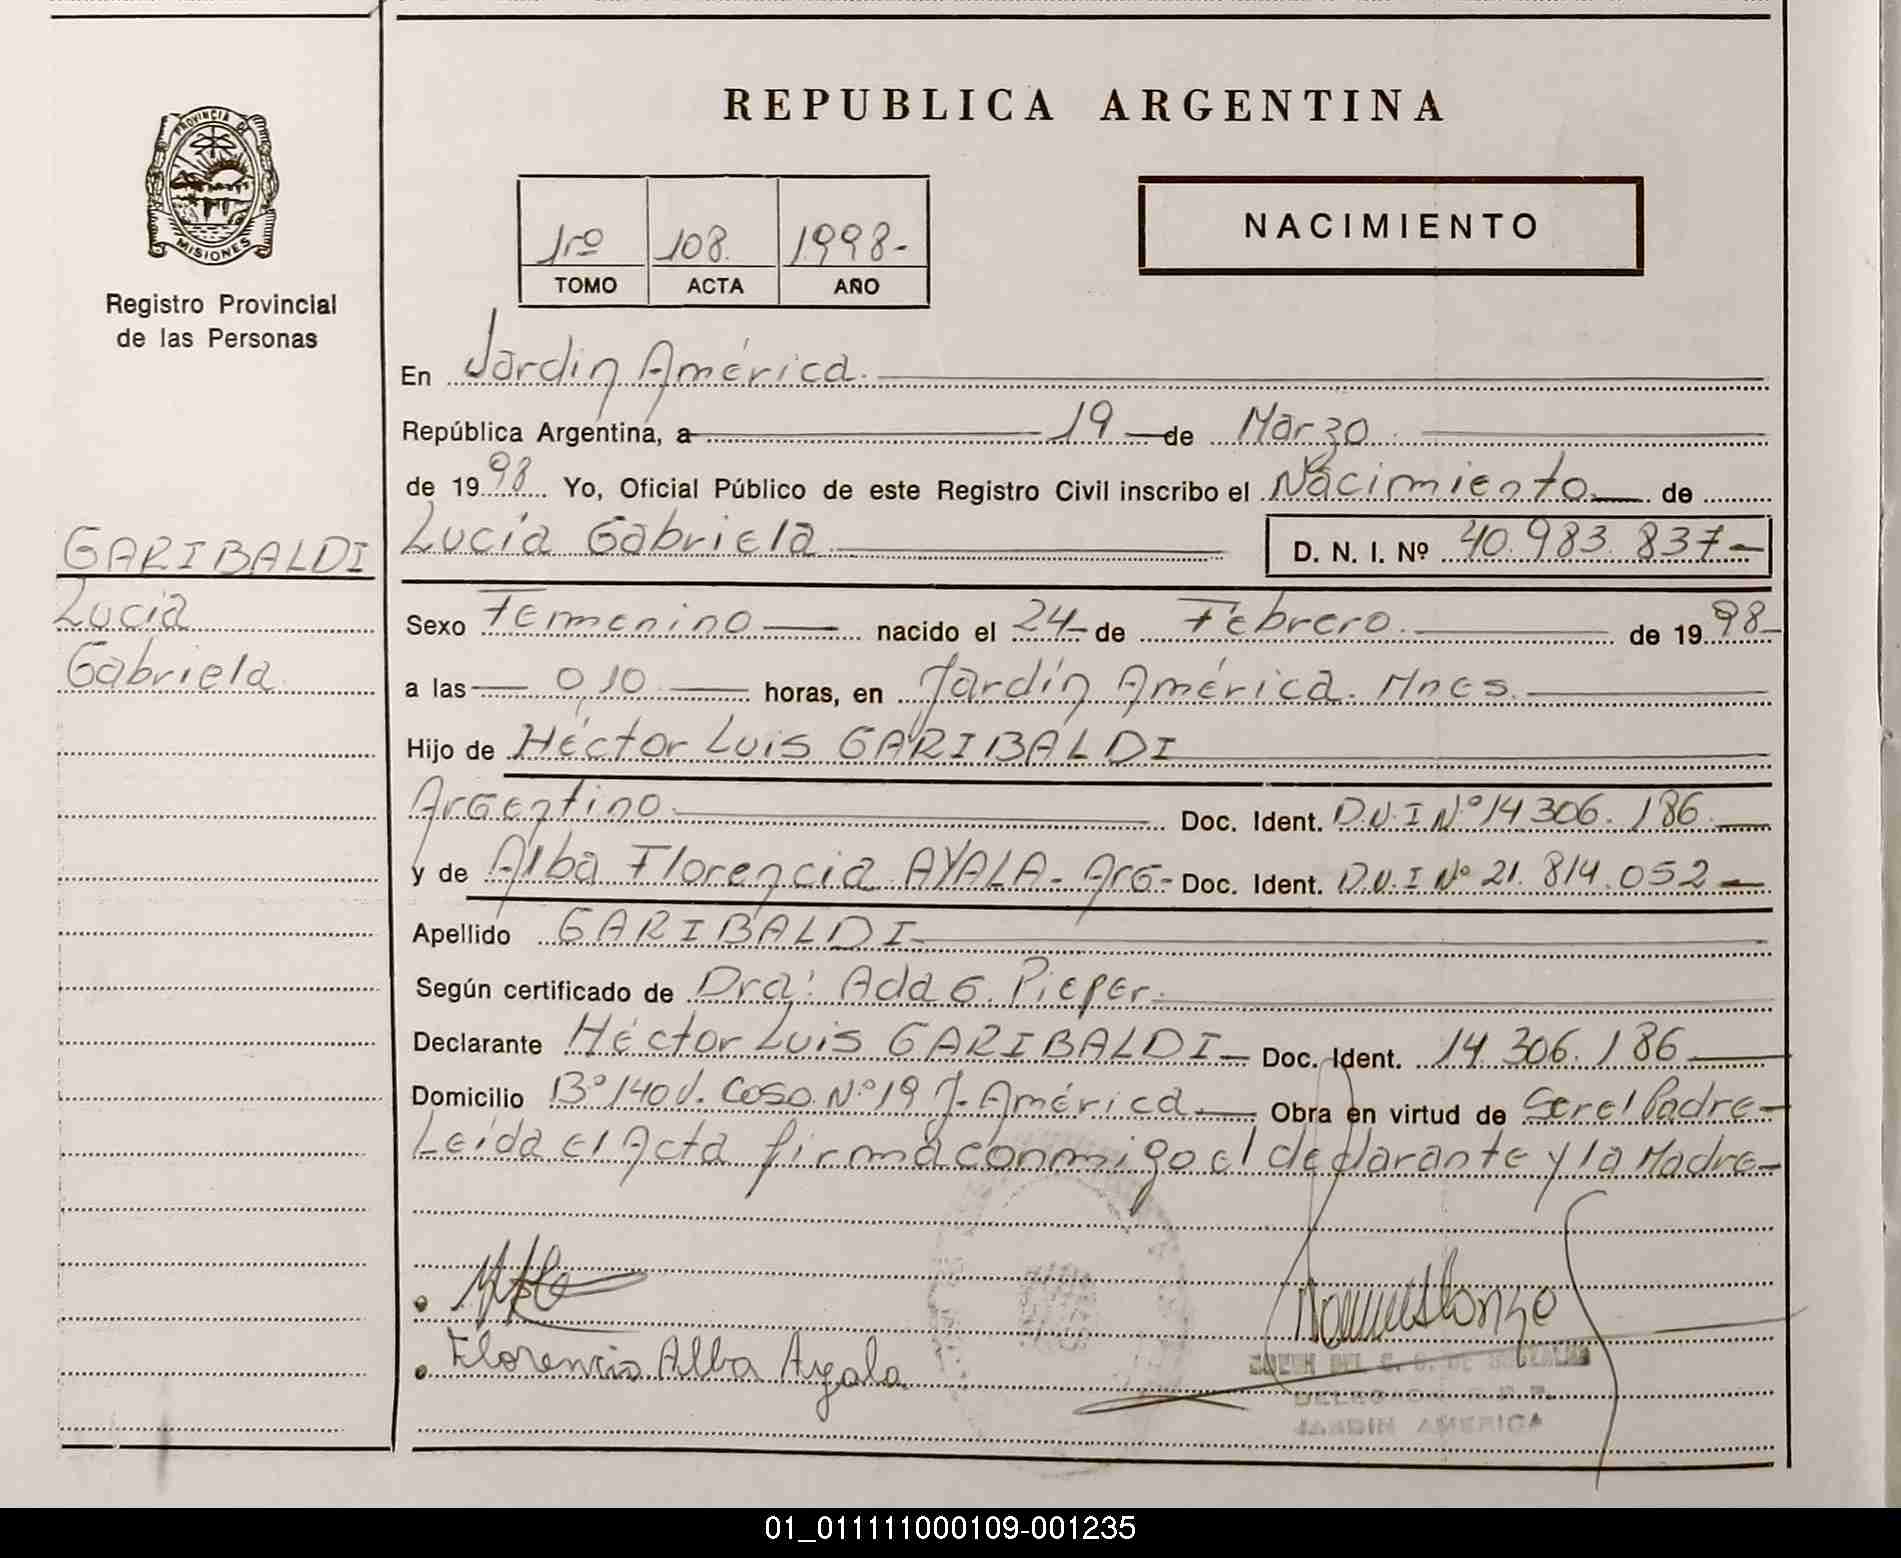 REPUBLICA ARGENTINA
PROVINCIA DE
MISIONES
Registro Provincial
de las Personas
1ro 108. 1998-
TOMO ACTA AÑO
NACIMIENTO
En Jardín América.
República Argentina, a 19 de Marzo
de 1998 Yo, Oficial Público de este Registro Civil inscribo el Nacimiento de
GARIBALDI
Lucía
Gabriela
Lucía Gabriela D. N. I. Nº 40.983.837-
Sexo Femenino nacido el 24- de Febrero. de 1998-
a las 0,10 horas, en Jardín América. Mnes.
Hijo de Héctor Luis GARIBALDI
Argentino Doc. Ident. D.N.I Nº 14.306.186
y de Alba Florencia AYALA- Arg- Doc. Ident. D.N.I Nº 21.814.052-
Apellido GARIBALDI-
Según certificado de Dra: Ada G. Pieper.
Declarante Héctor Luis GARIBALDI- Doc. Ident. 14.306.186
Domicilio Bº 140 V. Casa Nº 19 J. América Obra en virtud de Ser el Padre-
Leída el Acta firma conmigo el declarante y la Madre-
Florencia Alba Ayala
JARDIN AMERICA
01_011111000109-001235